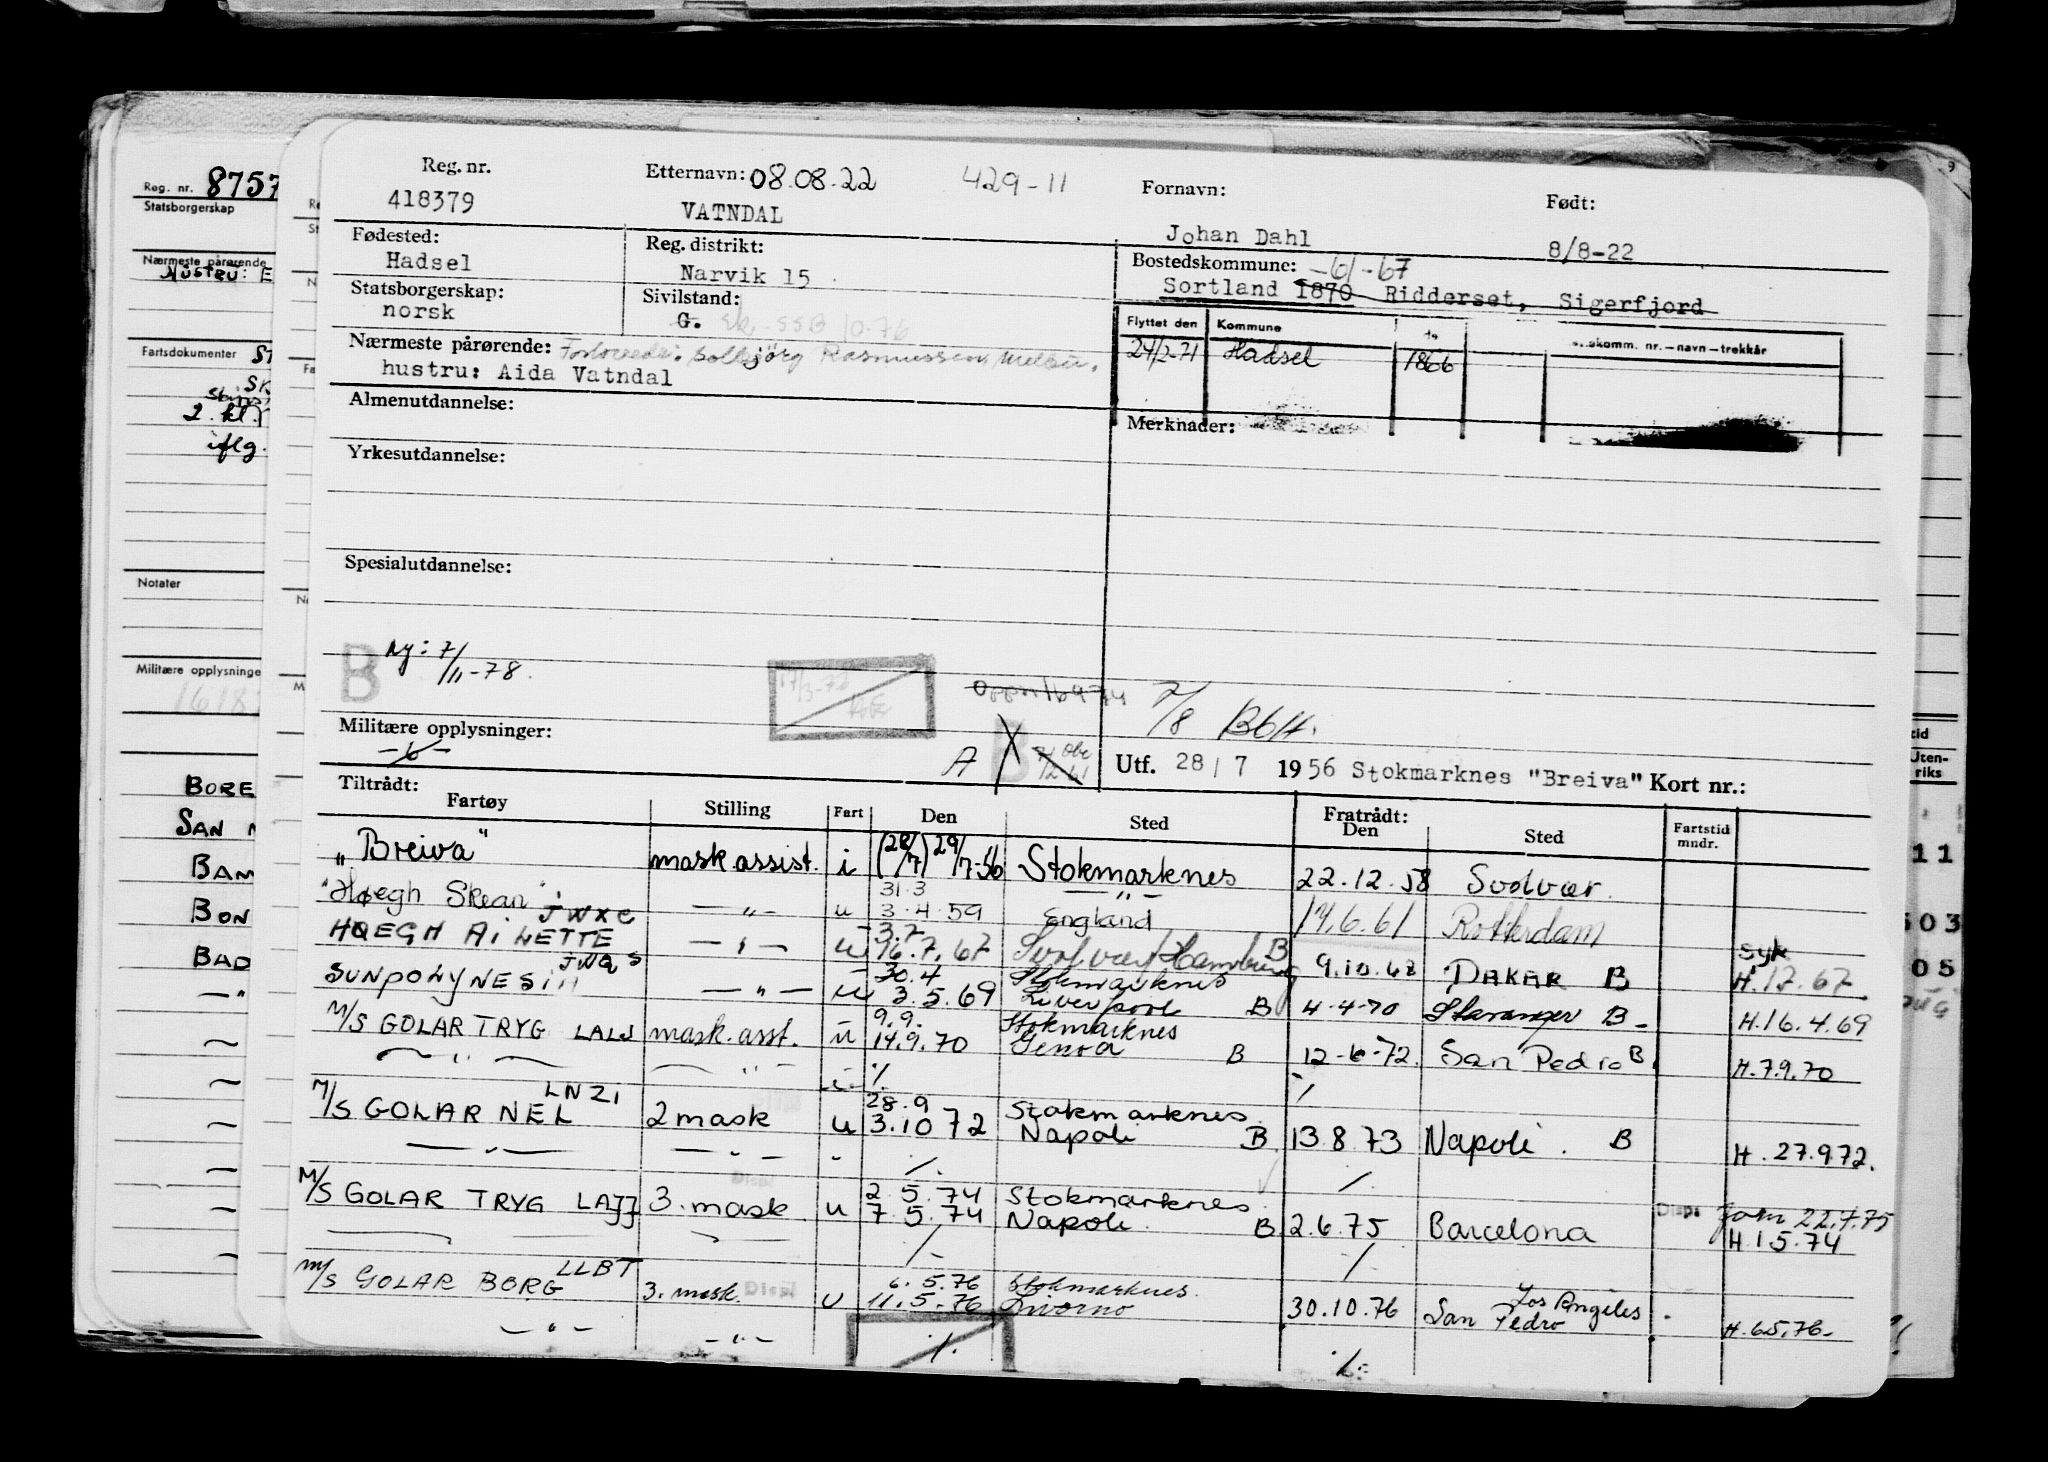 Reg. nr. Etternavn: 08.08.22 429-11 Fornavn: Født:
418379 VATNDAL Johan Dahl 8/8-22
Fødested: Reg. distrikt: Bostedskommune: -61-67
Hadsel Narvik 15 Sortland 1870 Ridderset, Sigerfjord
Statsborgerskap: Sivilstand:
norsk G. SSB 10.76
Flyttet den Kommune komm. nr.-navn-trekkår
24/2-71 Hadsel 1866
Nærmeste pårørende: Forlovede: Solbjörg Rasmussen, Melbu.
hustru: Aida Vatndal
Almenutdannelse:
Merknader:
Yrkesutdannelse:
Spesialutdannelse:
B Ny: 7/11-78
17/3-72
7/8
Militære opplysninger:
A B
Utf. 28/7 1956 Stokmarknes "Breiva" Kort nr.:
Tiltrådt: Fratrådt:
Fartøy Stilling Fart Den Sted Den Sted Fartstid mndr.
"Breiva" mask assist. i (28/7) 29/7-56 Stokmarknes 22.12.58 Svolvær.
31.3 — " —
"Høegh Skean" JWXC — " — u 3.4.59 England 14.6.61 Rotterdam
3.7
HØEGH AILETTE — " — u 16.7.67 Svolvær/Hamburg B 9.10.67 DAKAR B Syk H.12.67.
JWQS 30.4 Stokmarknes
SUNPOLYNESIA — " — u 3.5.69 Liverpool B 4-4-70 Stavanger B H.16.4.69
9.9. Stokmarknes
M/S GOLAR TRYG LAJJ mask. asst. u 14.9.70 Genoa B 12-6-72. San Pedro B. H.7.9.70
— " — — " — — ./. ./.
LNZI 28.9 Stokmarknes.
M/S GOLAR NEL 2 mask u 3.10 72 Napoli B 13.8.73 Napoli. B H.27.9 72.
— " — — " — - ./. ./.
2.5.74 Stokmarknes. Disp
M/S GOLAR TRYG LAJJ 3. mask u 7.5.74 Napoli. B 2.6.75 Barcelona H 1 5.74
./. ./.
LLBT 6.5.76 Stokmarknes. Los Angeles
M/S GOLAR BORG 3. mask. Disp u 11.5.76 Livorno 30.10.76 San Pedro H.6.5.76.
— " — — " — ./. ./.
Reg. nr. 8757
Statsborgerskap
Nærmeste pårørende
Hustru: E
Fartsdokumenter
2. kl.
iflg.
Notater
Militære opplysninge
BORE
SAN
BAM
BON
BAD
Uten-
riks
11
503
05